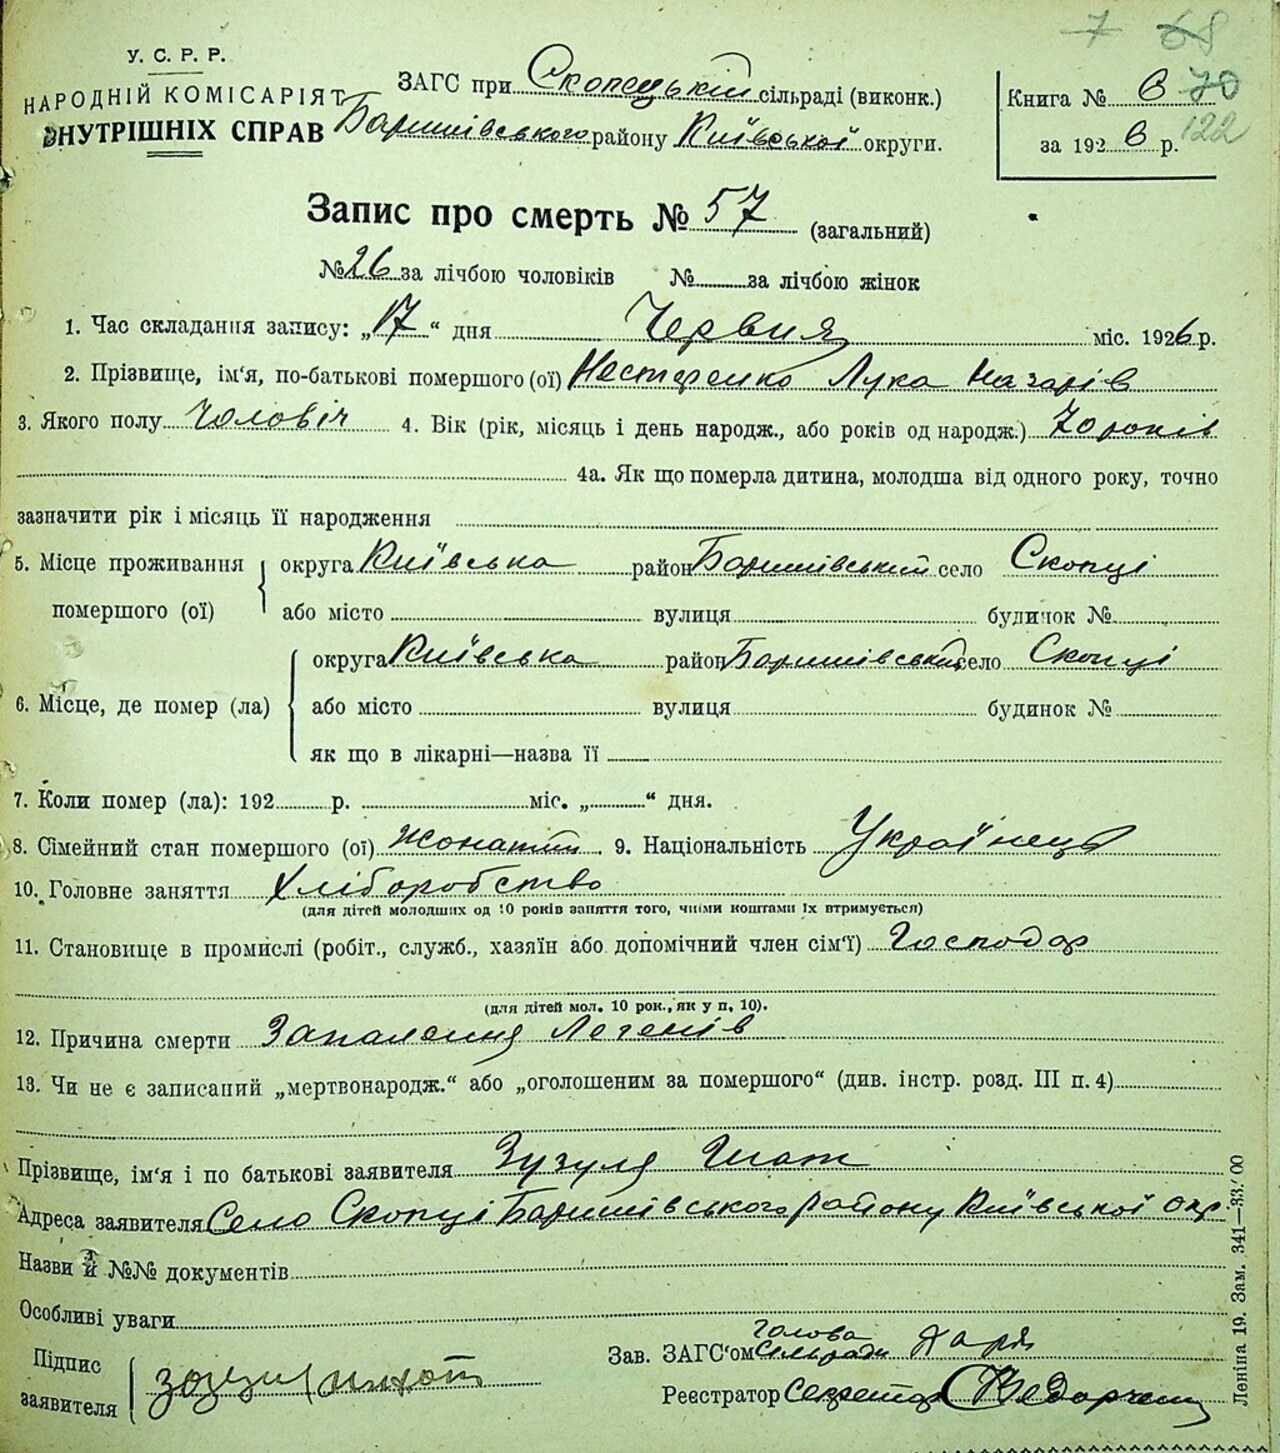 7 68
У. С. Р. Р.
НАРОДНІЙ КОМІСАРІЯТ
ВНУТРІШНІХ СПРАВ
ЗАГС при Скопецькій сільраді (виконк.)
Баришівського району Київської округи.
Книга № 6 70
за 1926 р. 122
Запис про смерть № 57 (загальний)
№ 26 за лічбою чоловіків № за лічбою жінок
1. Час складання запису: „17“ дня Червня міс. 1926 р.
2. Прізвище, ім‘я, по-батькові помершого (ої) Нестеренко Лука Назарів
3. Якого полу Чоловіч 4. Вік (рік, місяць і день народж., або років од народж.) 70 років
4а. Як що померла дитина, молодша від одного року, точно
зазначити рік і місяць її народження
5. Місце проживання помершого (ої) округа Київська район Баришівський село Скопці
або місто вулиця будинок №
6. Місце, де помер (ла) округа Київська район Баришівський село Скопці
або місто вулиця будинок №
як що в лікарні—назва її
7. Коли помер (ла): 192 р. міс. „ “ дня.
8. Сімейний стан помершого (ої) Жонатий 9. Національність Українець
10. Головне заняття Хліборобство
(для дітей молодших од 10 років заняття того, чиїми коштами їх втримується)
11. Становище в промислі (робіт., служб., хазяїн або допомічний член сім‘ї) Господар
(для дітей мол. 10 рок., як у п. 10).
12. Причина смерти Запалення Легенів
13. Чи не є записаний „мертвонародж.“ або „оголошеним за помершого“ (див. інстр. розд. III п. 4)
Прізвище, ім‘я і по батькові заявителя Зузуля
Адреса заявителя Село Скопці Баришівського району Київської окр.
Назви й №№ документів
Особливі уваги
Підпис заявителя
Зав. ЗАГС‘ом Голова Сельради
Реєстратор Секретар
Леніна 19. Зам. 341—33.